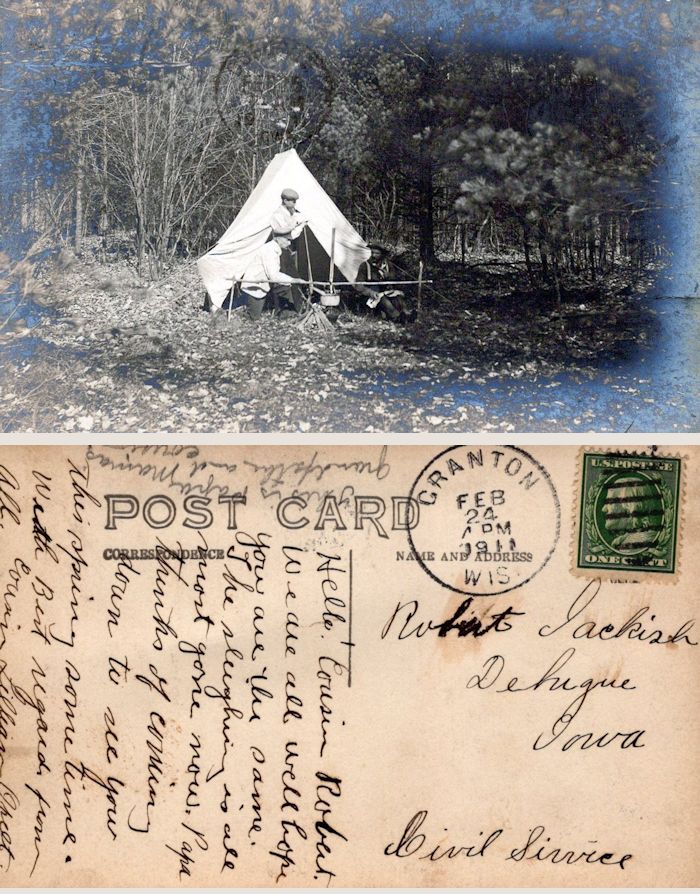 POST CARD
CORRESPONDENCE
NAME AND ADDRESS
GRANTON
FEB
24
PM
1911
WIS.
U.S. POSTAGE
ONE CENT
Robert Jackish
Debuque
Iowa
Civil Service
Hello. Cousin Robert.
We are all well hope
you are the same.
The sleighing is all
most gone now. Papa
thinks of coming
down to see you
this spring some time.
With Best regards from
All. Cousin Lillian
This is papa Mamas
grandpation and
cousin